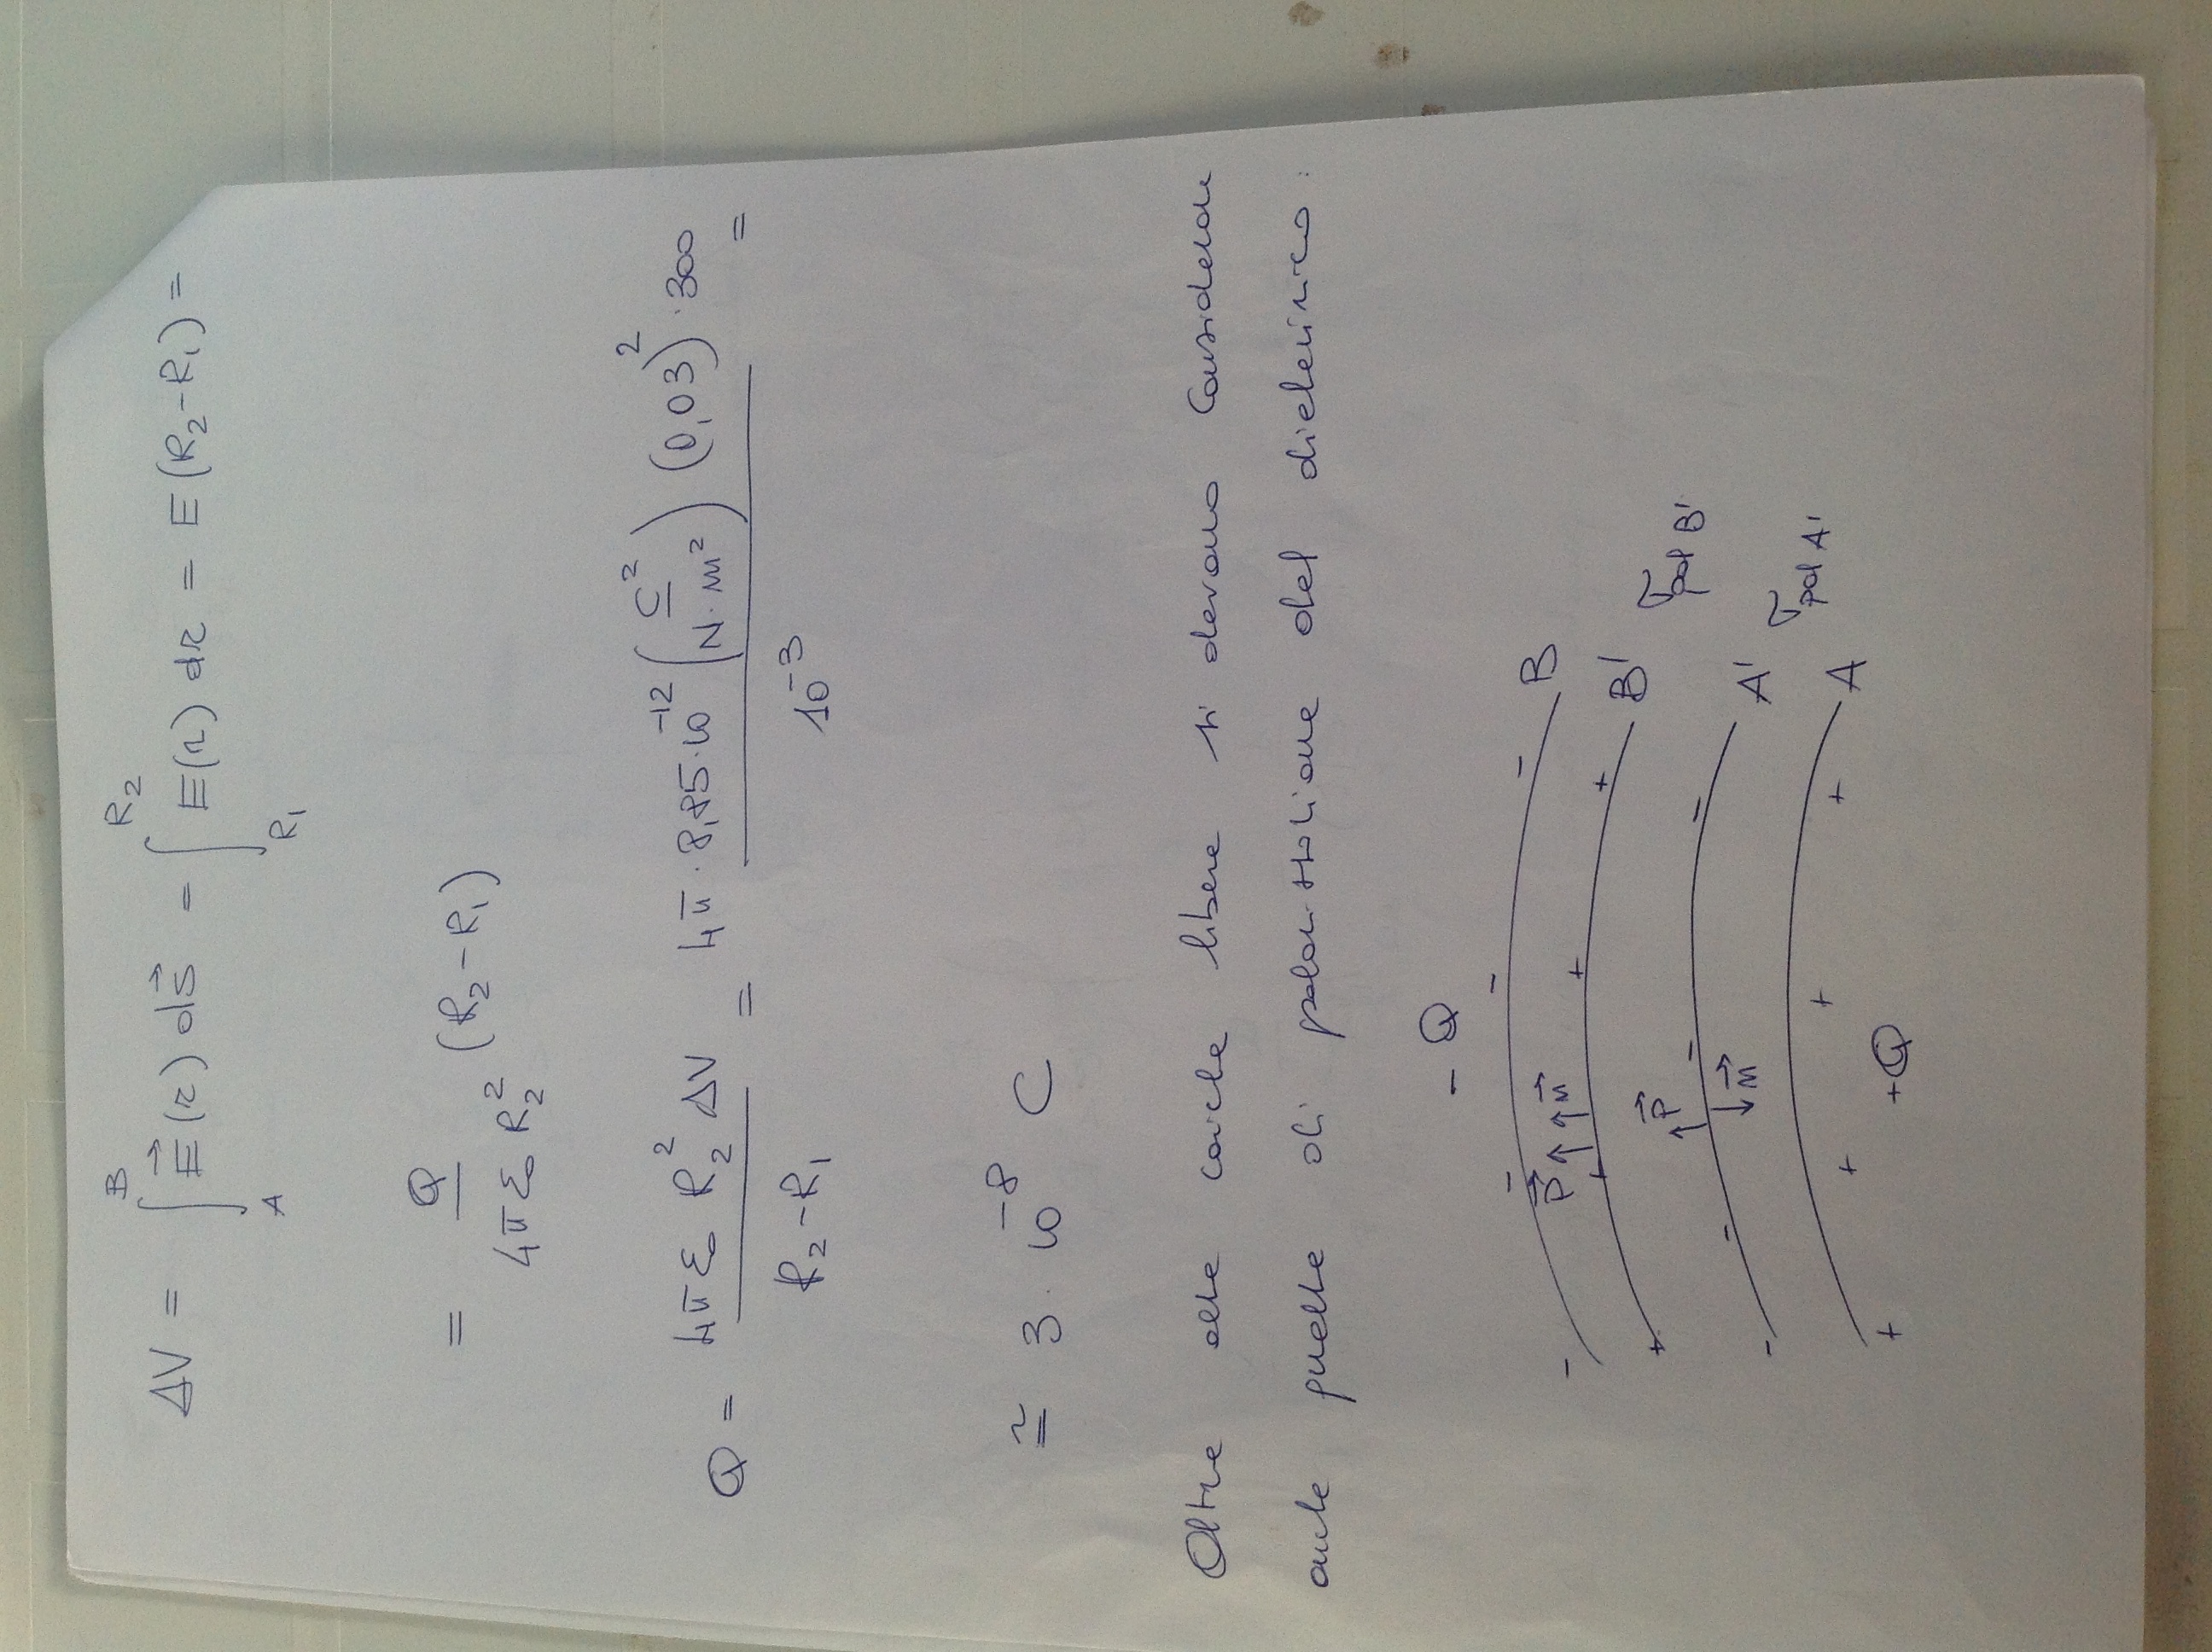 ΔV = ∫_A^B E⃗(r) ds⃗ = ∫_{R₁}^{R₂} E(r) dr = E(R₂-R₁) =
= Q / (4π ε₀ R₂²) (R₂-R₁)
Q = (4π ε₀ R₂² ΔV) / (R₂-R₁) = (4π · 8,85·10⁻¹² (C² / N·m²) (0,03)² · 300) / 10⁻³ =
≅ 3 · 10⁻⁸ C
Oltre alle cariche libere si devono considerare
anche quelle di polarizzazione del dielettrico:
- Q
- - - -
B
P⃗ n⃗
+ + + +
B'
σ_pol B'
P⃗
- - - -
n⃗
A'
σ_pol A'
A
+ + + +
+Q